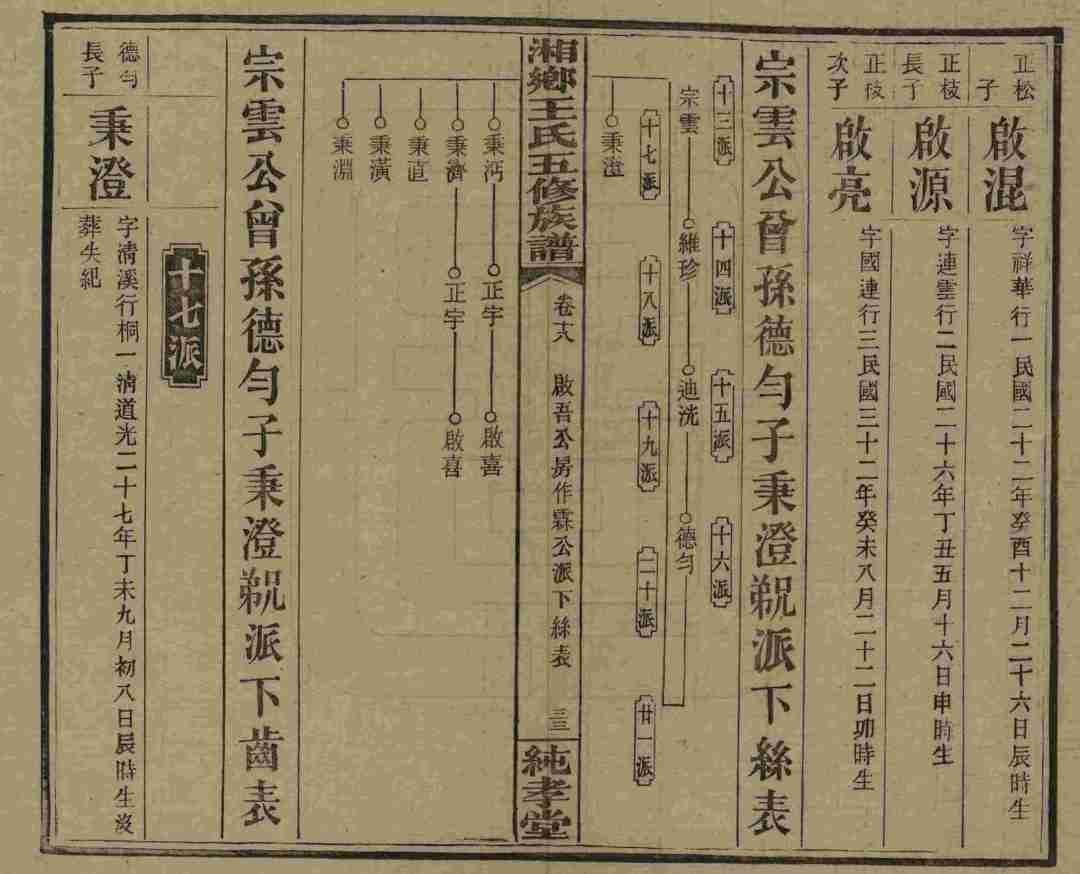 正松
子
啟混
字祥華行一民國二十二年癸酉十二月二十六日辰時生
正枝
長子
啟源
字連雲行二民國二十六年丁丑五月十六日申時生
正枝
次子
啟亮
字國連行三民國三十二年癸未八月二十二日卯時生
宗雲公曾孫德勻子秉澄覡派下絲表
十三派
十四派
十五派
十六派
宗雲
維珍
迪洸
德勻
十七派
十八派
十九派
二十派
廿一派
秉澄
湘鄉王氏五修族譜
卷十八
啟吾公房作霖公派下絲表
三三
純孝堂
秉沔
正宇
啟喜
秉濟
正宇
啟喜
秉直
秉潢
秉淵
宗雲公曾孫德勻子秉澄覡派下齒表
十七派
德勻
長子
秉澄
字清溪行桐一清道光二十七年丁未九月初八日辰時生沒
葬失紀